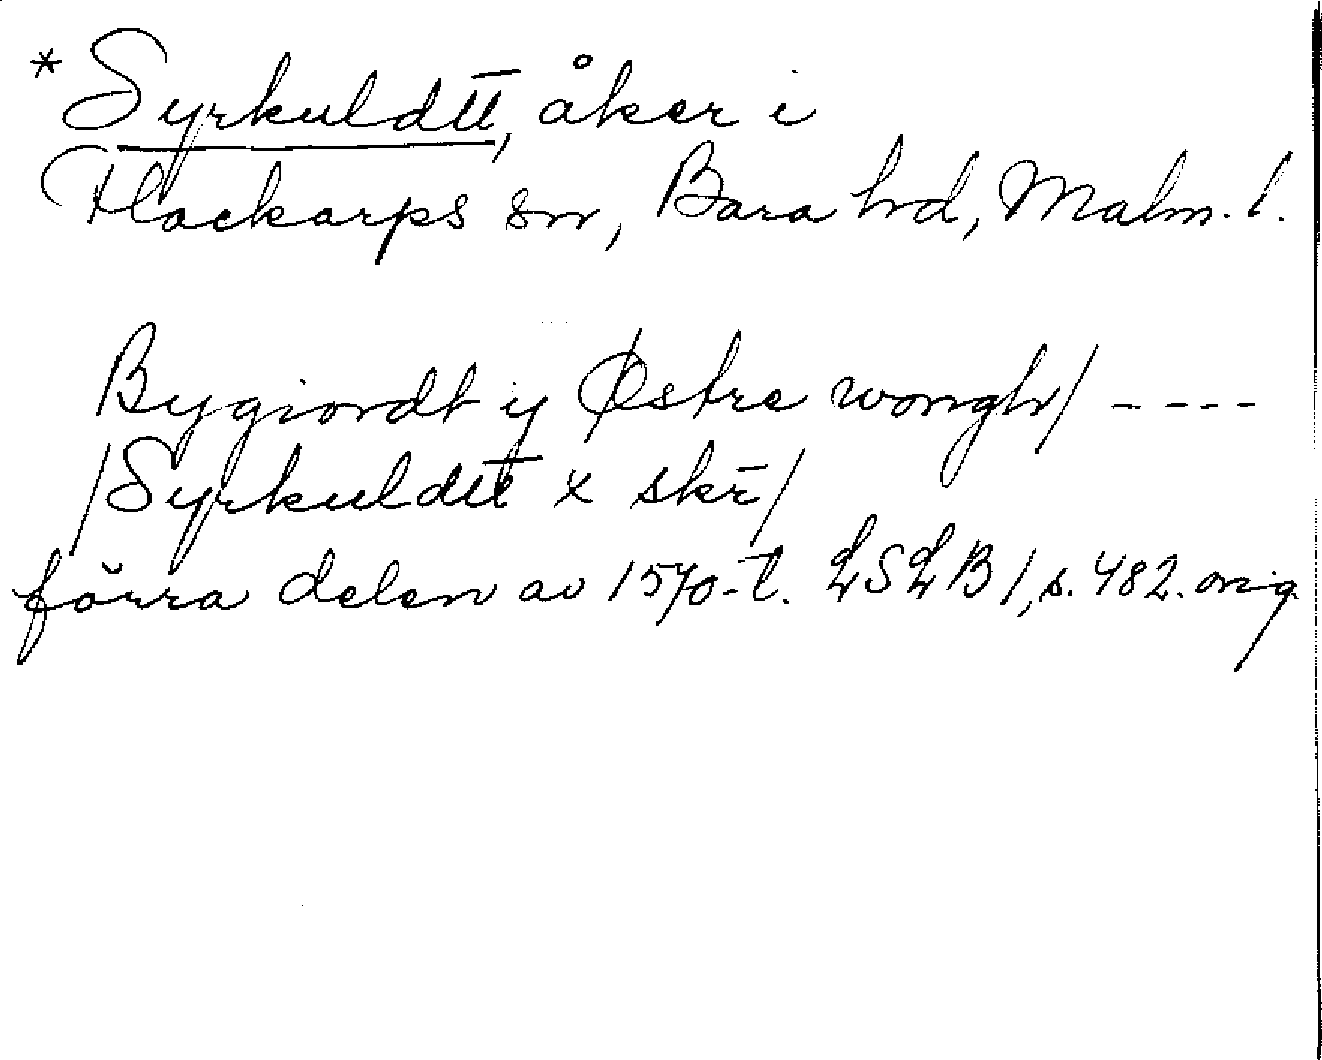 *Syrkuldtt, åker i
Flackarps sn, Bara hd, Malm. l.
Bygiordt ij Østre wongh/ ----
/Syrkuldtt x skē/
förra delen av 1570-t. LSLB 1, s. 482. orig.